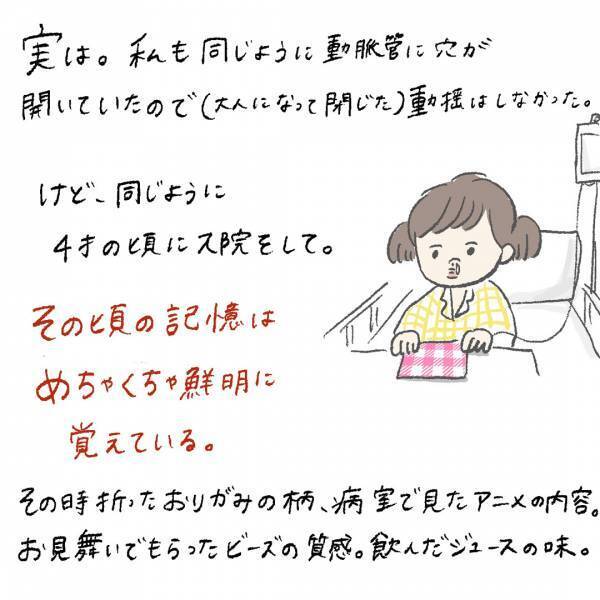 実は。私も同じように動脈管に穴が
開いていたので(大人になって閉じた)動揺はしなかった。
けど、同じように
4才の頃に入院をして。
その頃の記憶は
めちゃくちゃ鮮明に
覚えている。
その時折ったおりがみの柄、病室で見たアニメの内容。
お見舞いでもらったビーズの質感。飲んだジュースの味。